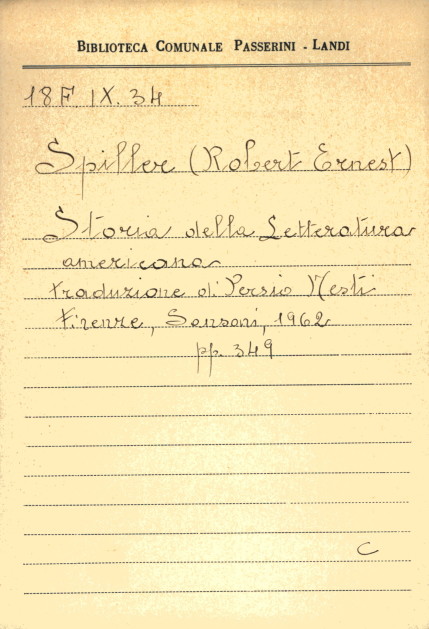 BIBLIOTECA COMUNALE PASSERINI - LANDI
18F IX. 34
Spiller (Robert Ernest)
Storia della Letteratura
americana
traduzione di Persio Nesti
Firenze, Sansoni, 1962
pp. 349
C